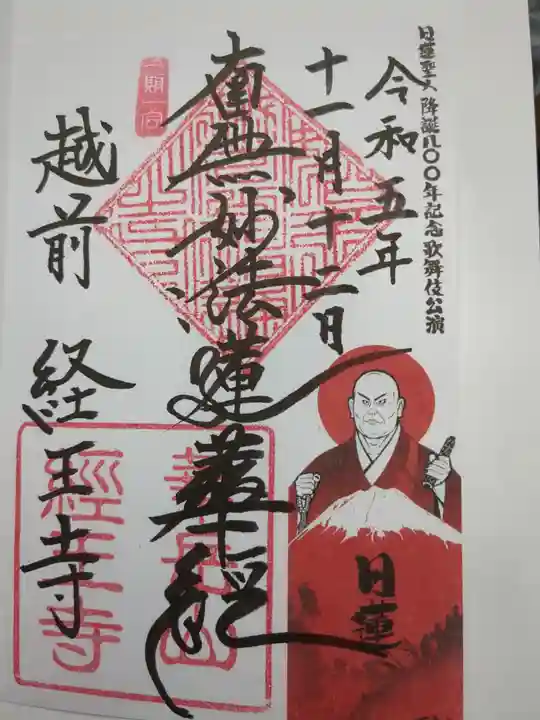 日蓮聖人降誕八〇〇年記念歌舞伎公演
令和五年
十一月十二日
南無妙法蓮華経
越前 経王寺
日蓮
經王寺